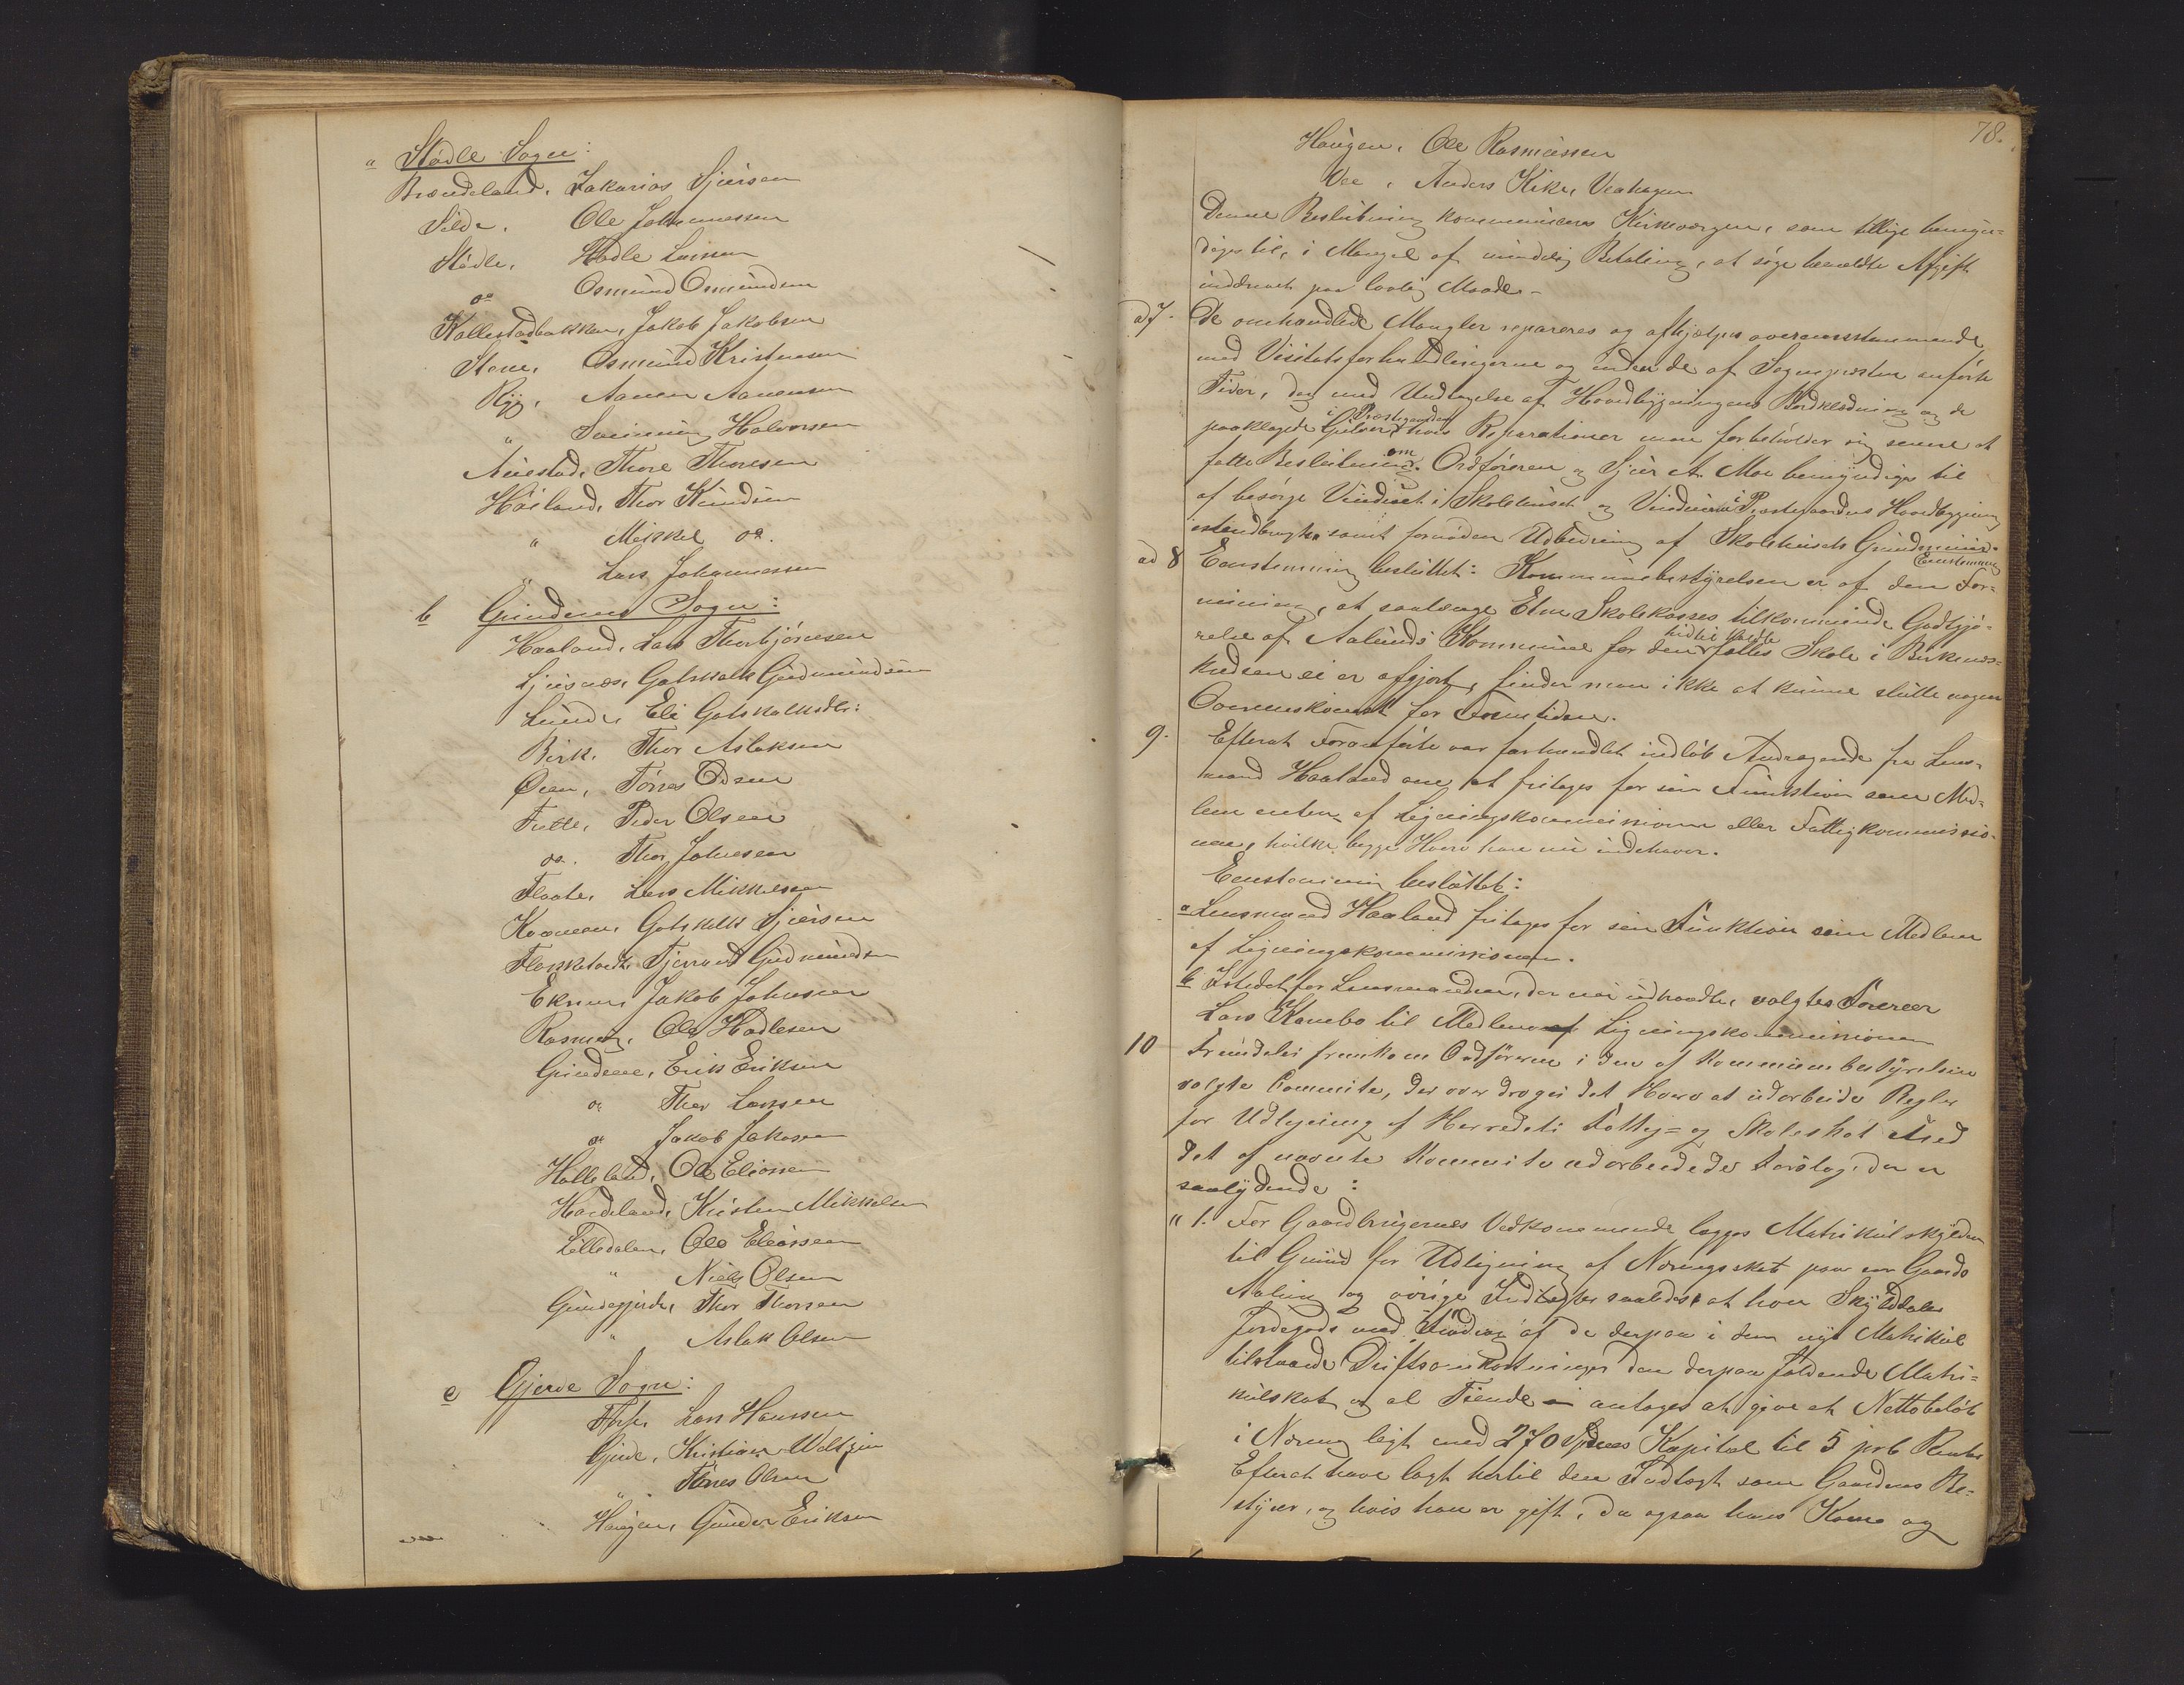 a Stødle Sogn:
Brændeland, Zakarias Sjursen
Silde, Ole Johannessen
Stødle, Hadle Larsen
do Osmund Osmundsen
Kallestadbakken, Jakob Jakobsen
Stene, Osmund Kristensen
Ryg, Aanen Aanensen
" Svening Halvorsen
Auestad, Thore Thoresen
Høiland, Thor Knudsen
" Mikkel do.
" Lars Johannessen
b Grindems Sogn:
Haaland, Lars Thorbjørnsen
Ljusnæs, Gotskalk Gudmundsen
Lunde, Eli Gotskalksdtr:
Birk, Thor Aslaksen
Øien, Tørres Odsen
Tutte, Peder Olsen
do. Thor Johnsen
Flaate, Lars Mikkelsen
Gotskalk Sjursen
Tjerand Gudmundsen
Eknen, Jakob Johnsen
Ole Hadlesen
Grindem, Erik Eriksen
do Thor Larsen
do Jakob Jakobsen
Halleland, Ole Eliassen
Hardeland, Kristen Mikkelsen
Lilledalen, Ole Eliassen
" Niels Olsen
Grindegjerde, Thor Thorsen
" Aslak Olsen
c Gjerde Sogn:
Lars Hanssen
Gjerde, Kristian
" Tørres Olsen
Haugen, Gunder Eriksen
78.
Haugen, Ole Rasmussen
Vee, Anders Kikr, Veahagen
Denne Beslutning kommuniceres Kirkeværgen, som tillige bemyn-
diges til, i Mangel af mindelig Betaling, at søge bemeldte Afgift
inddrevet paa lovlig Maade.
ad 7. De omhandlede Mangler repareres og afhjælpes overensstemmende
med Visitatsforhandlingerne og inden de af Sognepræsten anførte
Tider, dog med Undtagelse af Hovedbygningens Bordklædning og de
paaklagede Gulve i Præstegaarden, hvis Reparationer man forbeholder sig senere at
fatte Beslutning om. Ordføreren og Sjur A. Moe bemyndiges til
at besørge Vinduet i Skolehuset og Vinduerne i Præstegaardens Hovedbygning
istandbragt, samt fornøden Udbedring af Skolehusets Grundmuur.
Eenstemmig
ad 8 Eenstemmig besluttet: Kommunebestyrelsen er af den For-
mening, at saalænge Etne Skolekasses tilkommende Godtgjø-
relse af Aalunds Kommune for den hidtil havte fælles Skole i Birkenæs-
kredsen ei er afgjort, finder man ikke at kunne slutte nogen
Overenskomst for Fremtiden.
9. Efterat Foranførte var forhandlet indløb Andragende fra Lens-
mand Haaland om at fritages for sin Funktion som Med-
lem enten af Ligningskommissionen eller Fattigkommissio-
nen, hvilke begge Hverv han nu indehaver.
Eenstemmig besluttet:
a Lensmand Haaland fritages for sin Funktion som Medlem
af Ligningskommissionen.
b Istedetfor Lensmanden, der nu udtraadte, valgtes
Lars Kambo til Medlem af Ligningskommissionen
10 Fremdeles fremkom Ordføreren i den af Kommunebestyrelsen
valgte Committe, der overdroges det Hverv at udarbeide Regler
for Udligning af Herredets Fattig- og Skoleskat med
det af nævnte Kommitte udarbeidede Forslag, der er
saalydende:
"1. For Gaardbrugernes Vedkommende lægges Matrikulskylden
til Grund for Udligning af Næringsskat paa en Gaards
Avling og øvrige Indtægter saaledes, at hver Skylddaler
Jordegods med Fradrag af de derpaa i den nye Matrikul
tilstaaede Driftsomkostninger, den derpaa faldende Matri-
kulskat og al Tiende antages at give et Nettobeløb
i Næring ligt med 270 Spdlers Kapital til 5 prC Rente
Efterat have lagt hertil den Indtægt som Gaardens Be-
styrer, og hvis han er gift, da ogsaa hans Kone og